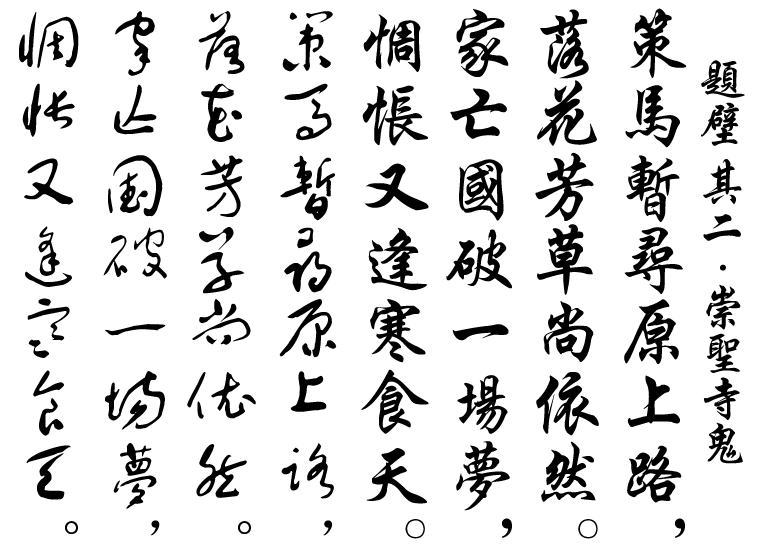 題壁 其二·崇聖寺鬼
策馬暫尋原上路，
落花芳草尚依然。
家亡國破一場夢，
惆悵又逢寒食天。
策馬暫尋原上路，
落花芳草尚依然。
家亡國破一場夢，
惆悵又逢寒食天。